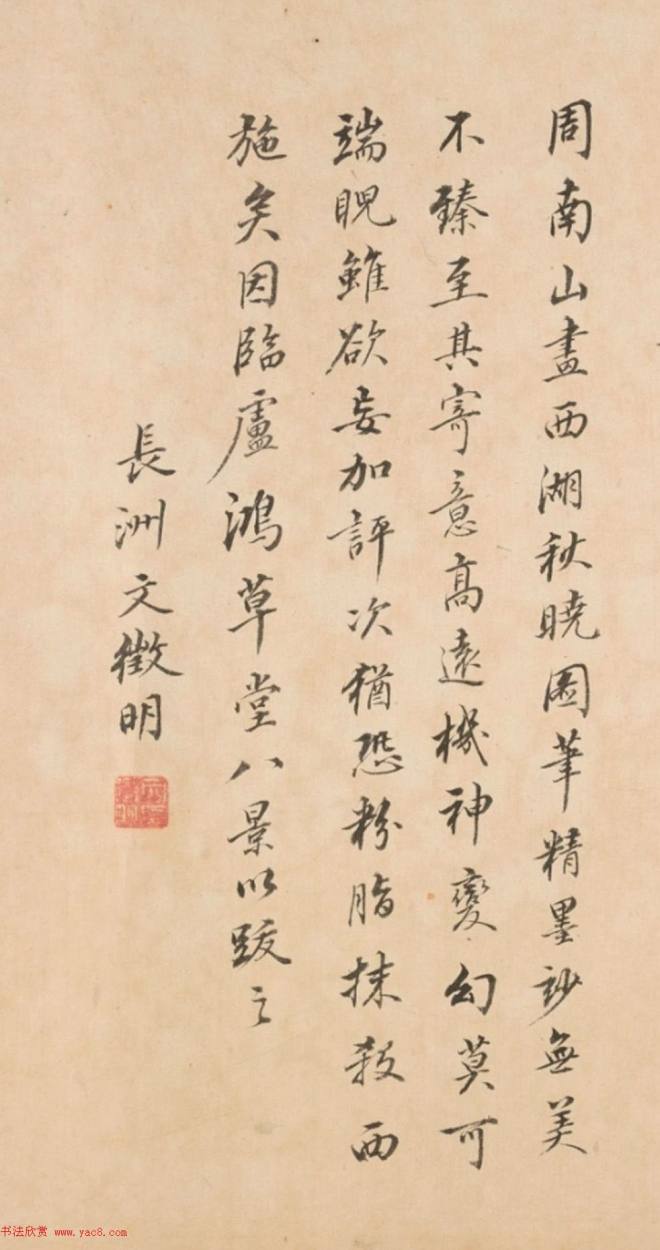 周南山畫西湖秋曉圖筆精墨妙無美
不臻至其寄意高遠機神變幻莫可
端睨雖欲妄加評次猶恐粉脂抹殺西
施矣因臨盧鴻草堂八景以跋之
長洲文徵明
书法欣赏 www.yac8.com